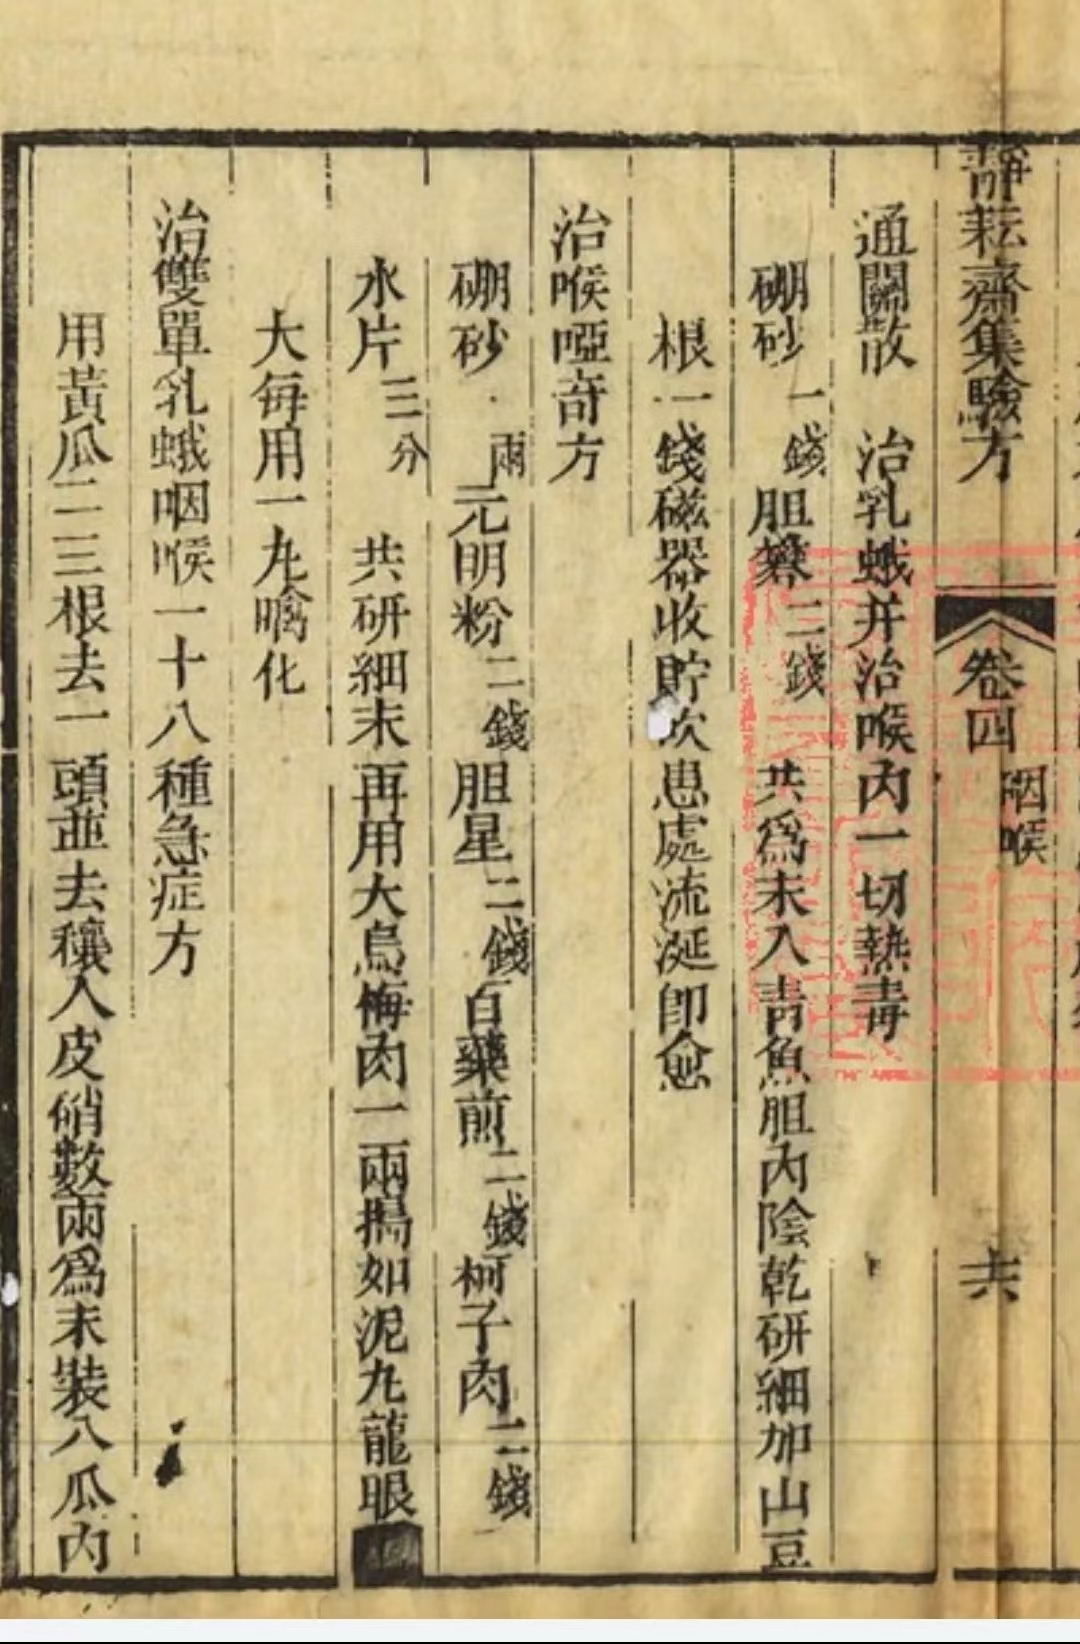 靜耘齋集驗方 卷四 咽喉 十六
通關散 治乳蛾并治喉內一切熱毒
硼砂一錢胆礬二錢共爲末入青魚胆內陰乾研細加山豆
根一錢磁器收貯吹患處流涎卽愈
治喉啞奇方
硼砂一兩元明粉二錢胆星二錢百藥煎二錢柯子肉二錢
水片三分共研細末再用大烏梅肉一兩搗如泥九龍眼
大每用一九噙化
治雙單乳蛾咽喉一十八種急症方
用黃瓜二三根去一頭並去穰入皮硝數兩爲末裝入瓜內